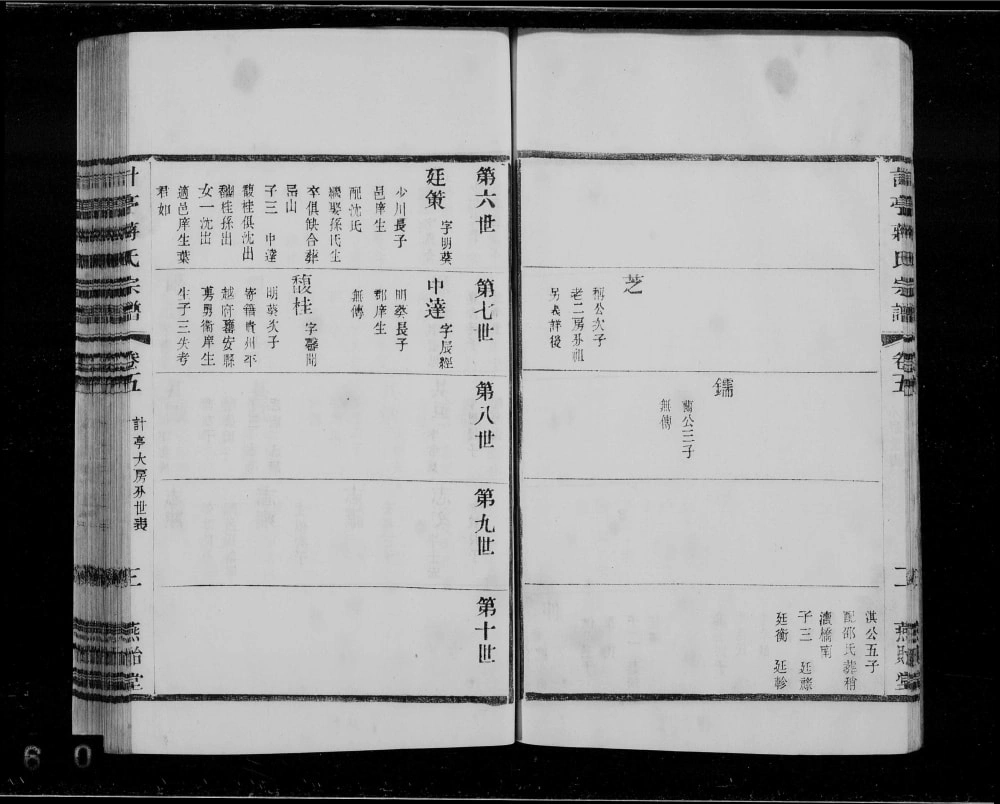 計亭蔣氏宗譜
卷五
二
燕貽堂
芝
稱公次子
老二房分祖
另表詳後
鑐
蘭公三子
無傳
淇公五子
配邵氏葬稍
瀆橋南
子三 廷
廷衡 廷軫
第六世
廷策 字明葵
少川長子
邑庠生
配沈氏
繼娶孫氏生
卒俱缺合葬
子三 中達
馥桂俱沈出
桂孫出
女一沈出
適邑庠生葉
君如
第七世
中達 字辰經
明葵長子
郡庠生
無傳
馥桂 字馨聞
明葵次子
寄籍貴州平
越府甕安縣
衛庠生
生子三失考
第八世
第九世
第十世
計亭蔣氏宗譜
卷五
計亭大房分世表
三
燕貽堂
6 0